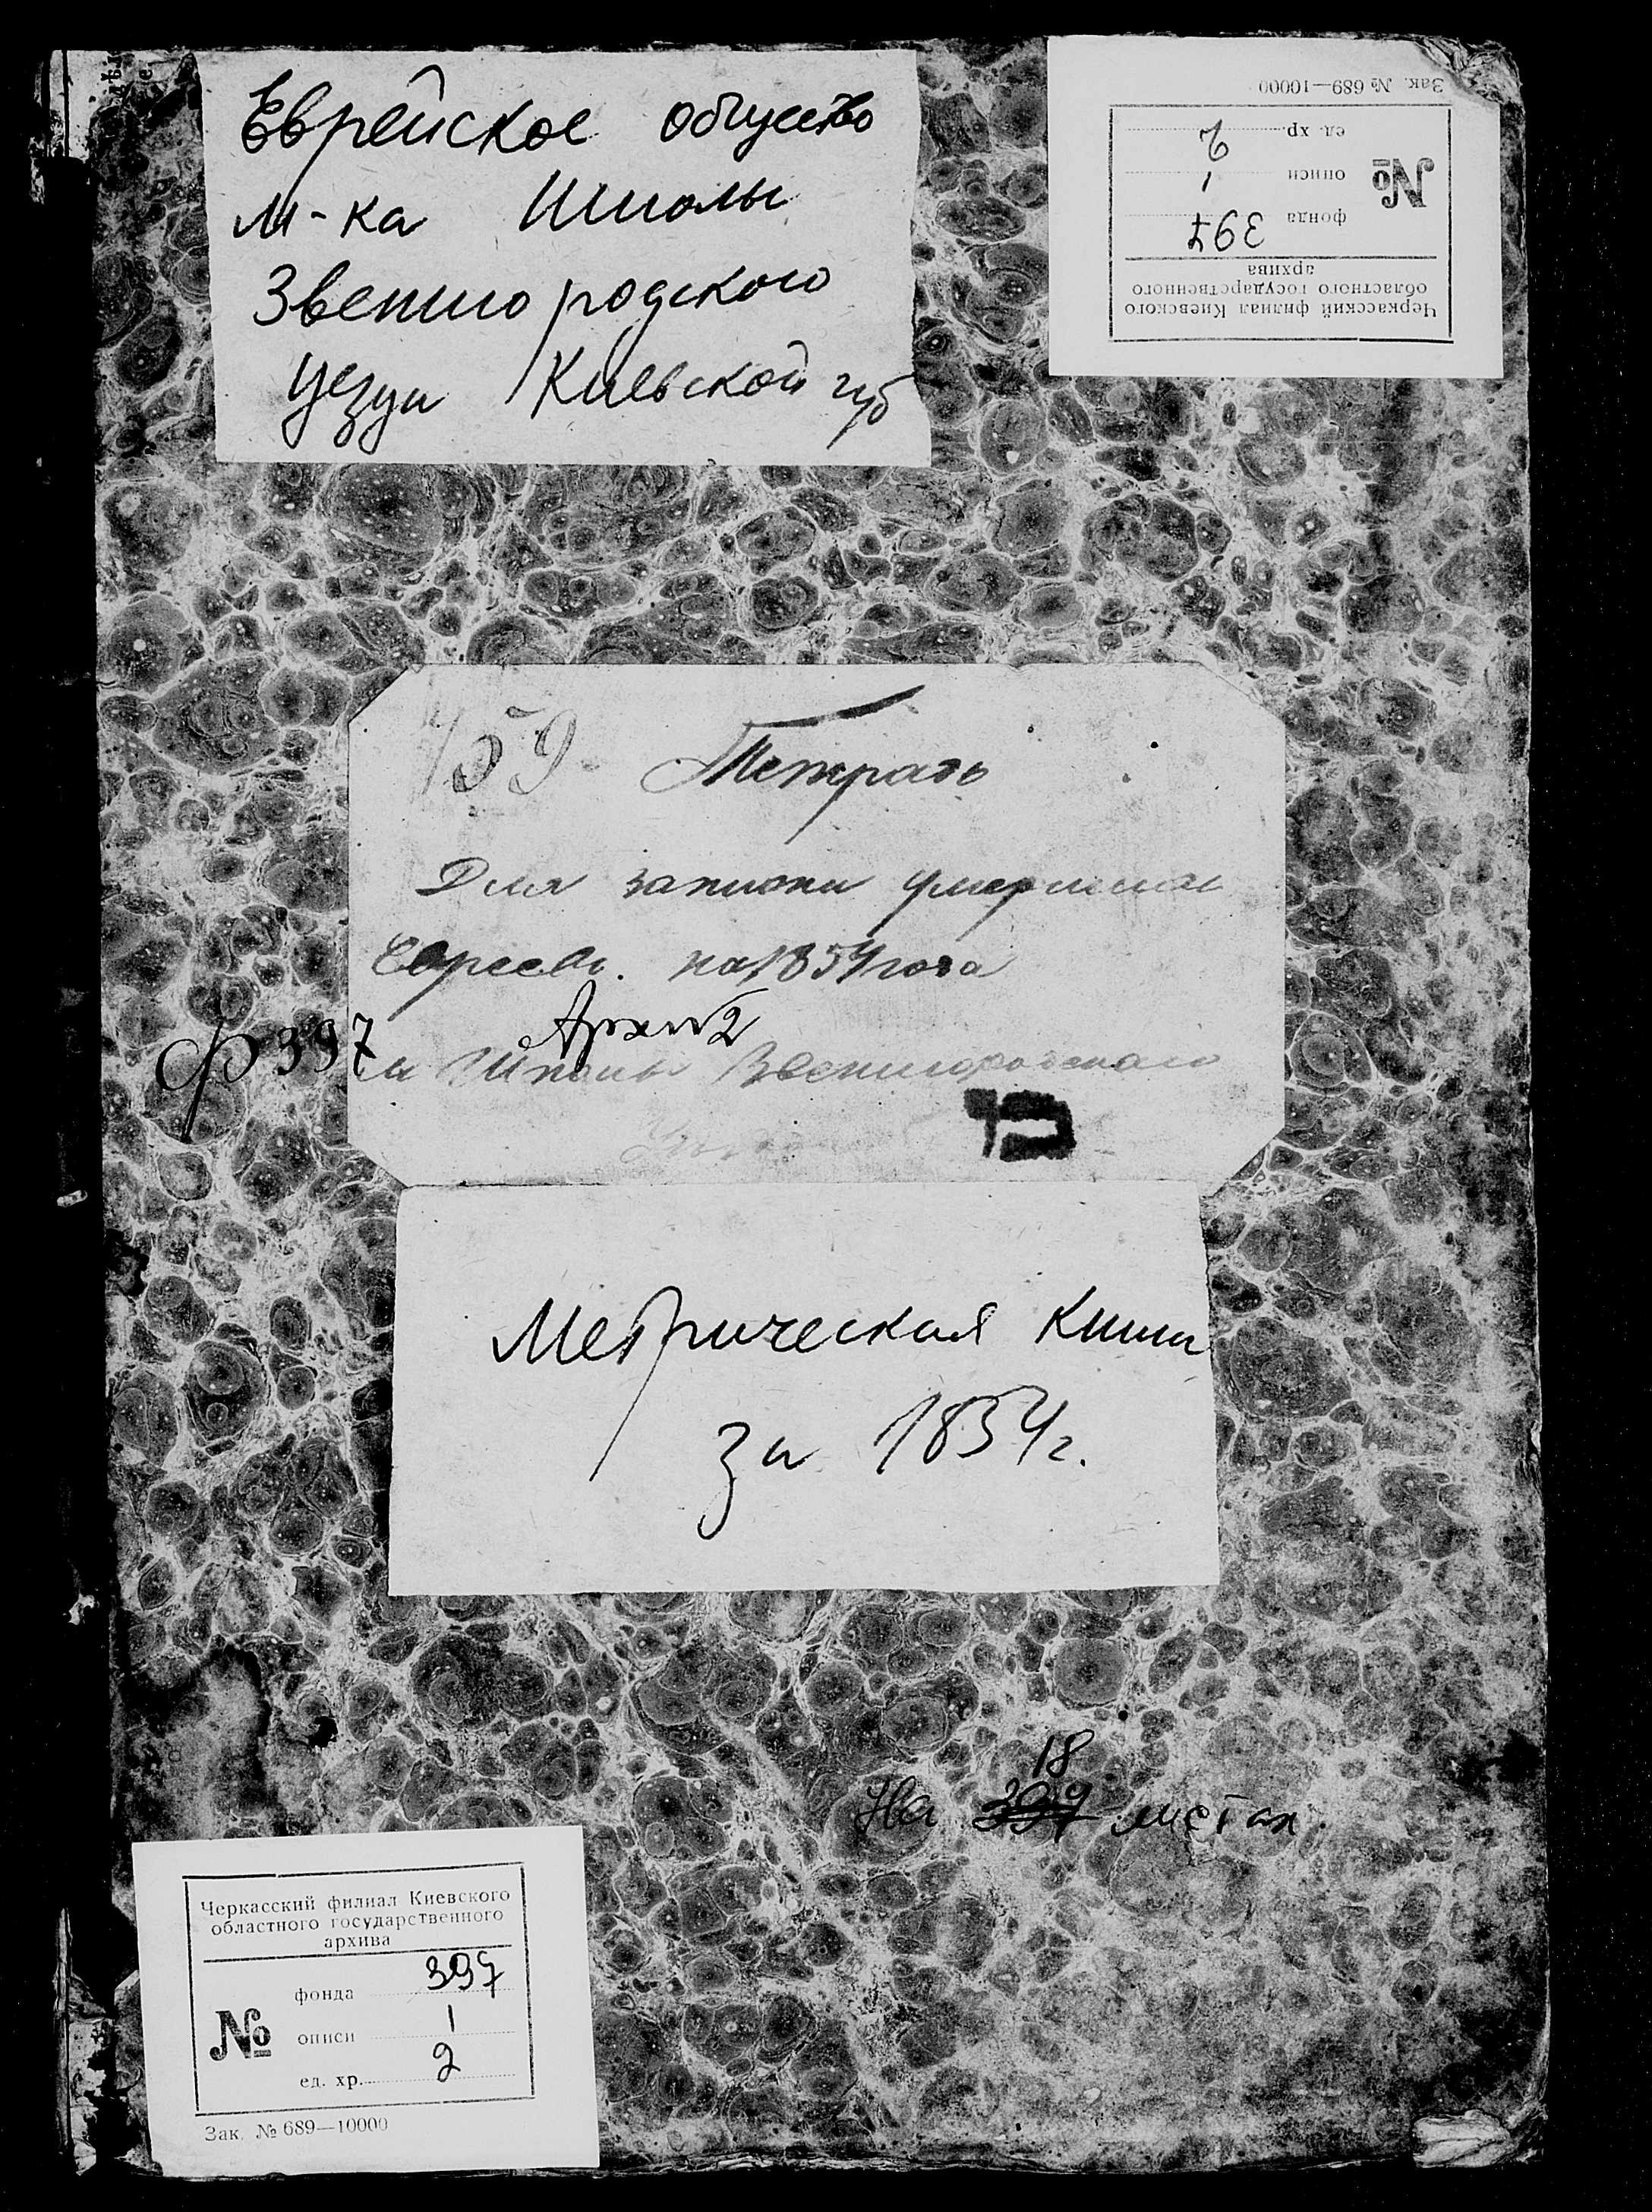 Еврейское общество
м-ка Шполы
Звенигородского
уезда Киевской губ
Зак. № 689—10000
Черкасский филиал Киевского
областного государственного
архива
№
фонда 397
описи 1
ед. хр. 2
459
Тетрадь
Для записки умершихъ
Евреевъ на 1854 года
Ф 397
м Шполы Звенигородскаго
Метрическая книга
за 1854 г.
18
На 397 листах.
Черкасский филиал Киевского
областного государственного
архива
№
фонда 397
описи 1
ед. хр. 2
Зак. № 689—10000